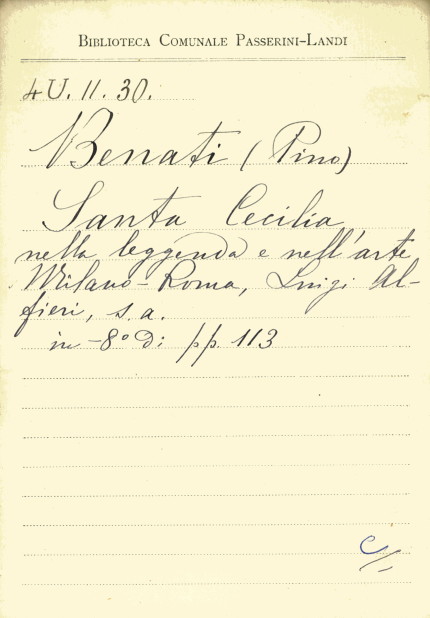 BIBLIOTECA COMUNALE PASSERINI-LANDI
4U. II. 30.
Benati (Pino)
Santa Cecilia
nella leggenda e nell'arte
Milano-Roma, Luigi Al-
fieri, s.a.
in -8º d: pp. 113